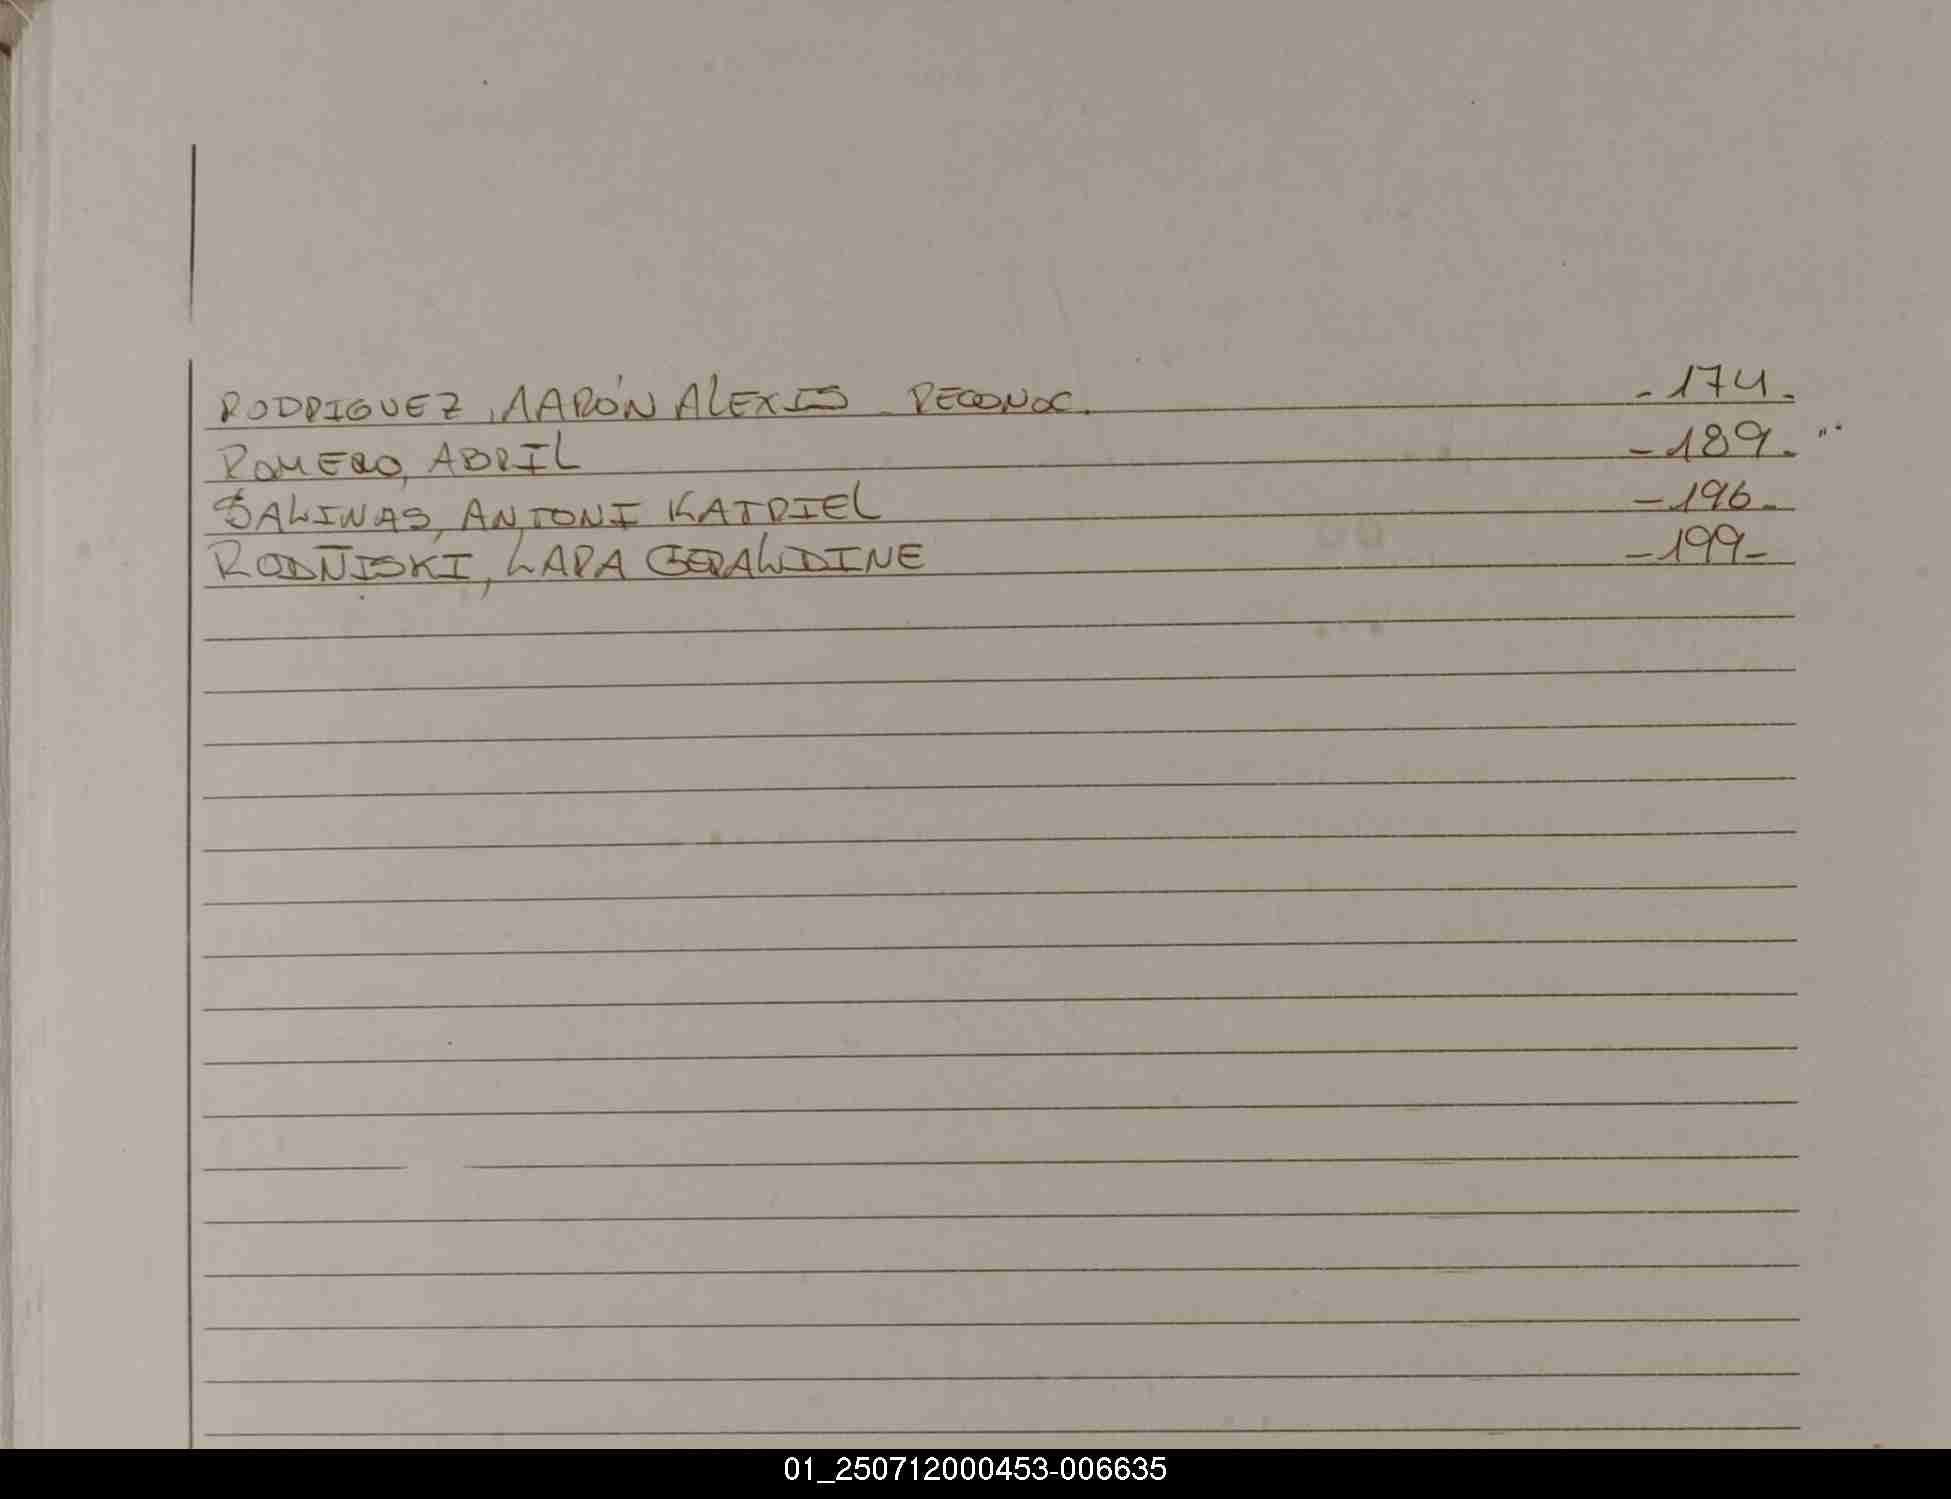 RODRIGUEZ, AARÓN ALEXIS RECONOC. -174-
ROMERO, ABRIL -189-
SALINAS, ANTONI KATRIEL -196-
RODÑISKI, LARA GERALDINE -199-
01_250712000453-006635